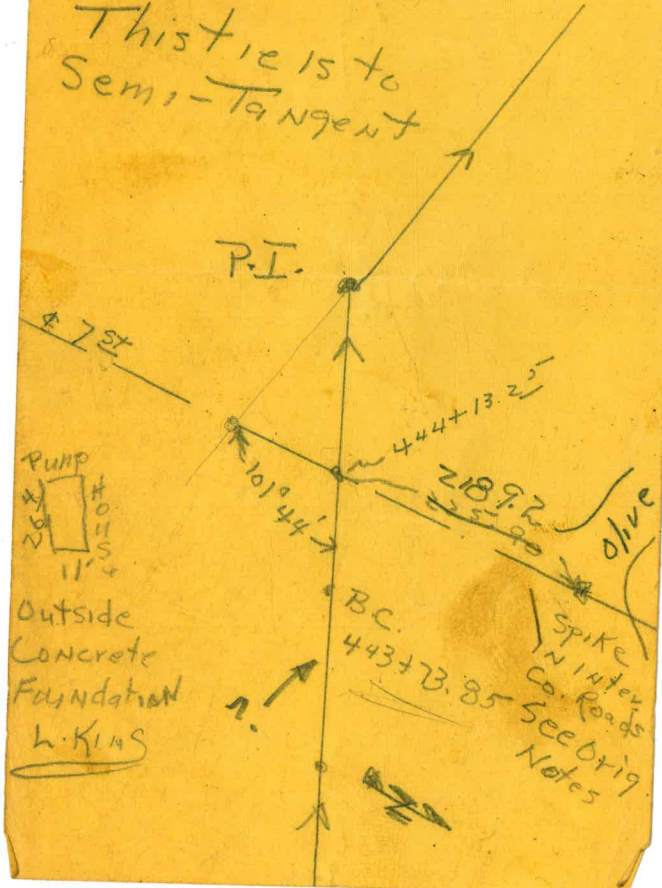 This tie is to
Semi-Tangent
P.I.
7 st
444+13.25
2189.2
Olive
101° 44'
Pump
HOUS
11'4
Outside
Concrete
Foundation
L. King
B.C.
443+73.85
Spike
IN Inter
Co. Roads
See Orig.
Notes
N